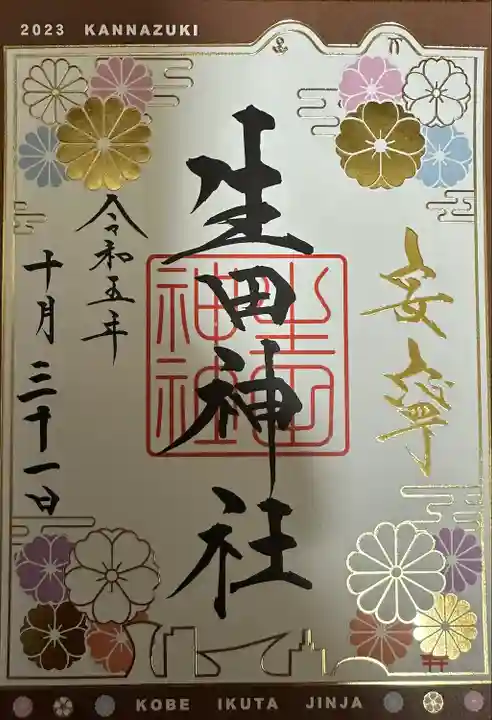 2023 KANNAZUKI
安寧
生田神社
生田神社
令和五年
十月三十一日
KOBE IKUTA JINJA